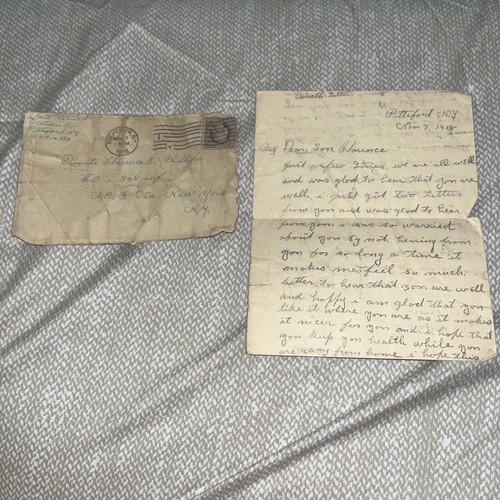 Pittsford
N.Y.
1918
Private Clarence
Co
Via New York
N.Y.
Private Letter
Pittsford N Y
Nov 7, 1918
Dear Son Clarence
Just a few lines. we are all well
and was glad to hear that you are
well. i just got two Letters
from you and was glad to hear
from you. i was so worried
about you by not hearing from
you for so long a time it
makes me feel so much
better to hear that you are well
and happy i am glad that you
like it where you are as it makes
it nicer for you and i hope that
you keep you health while you
are away from home i hope this